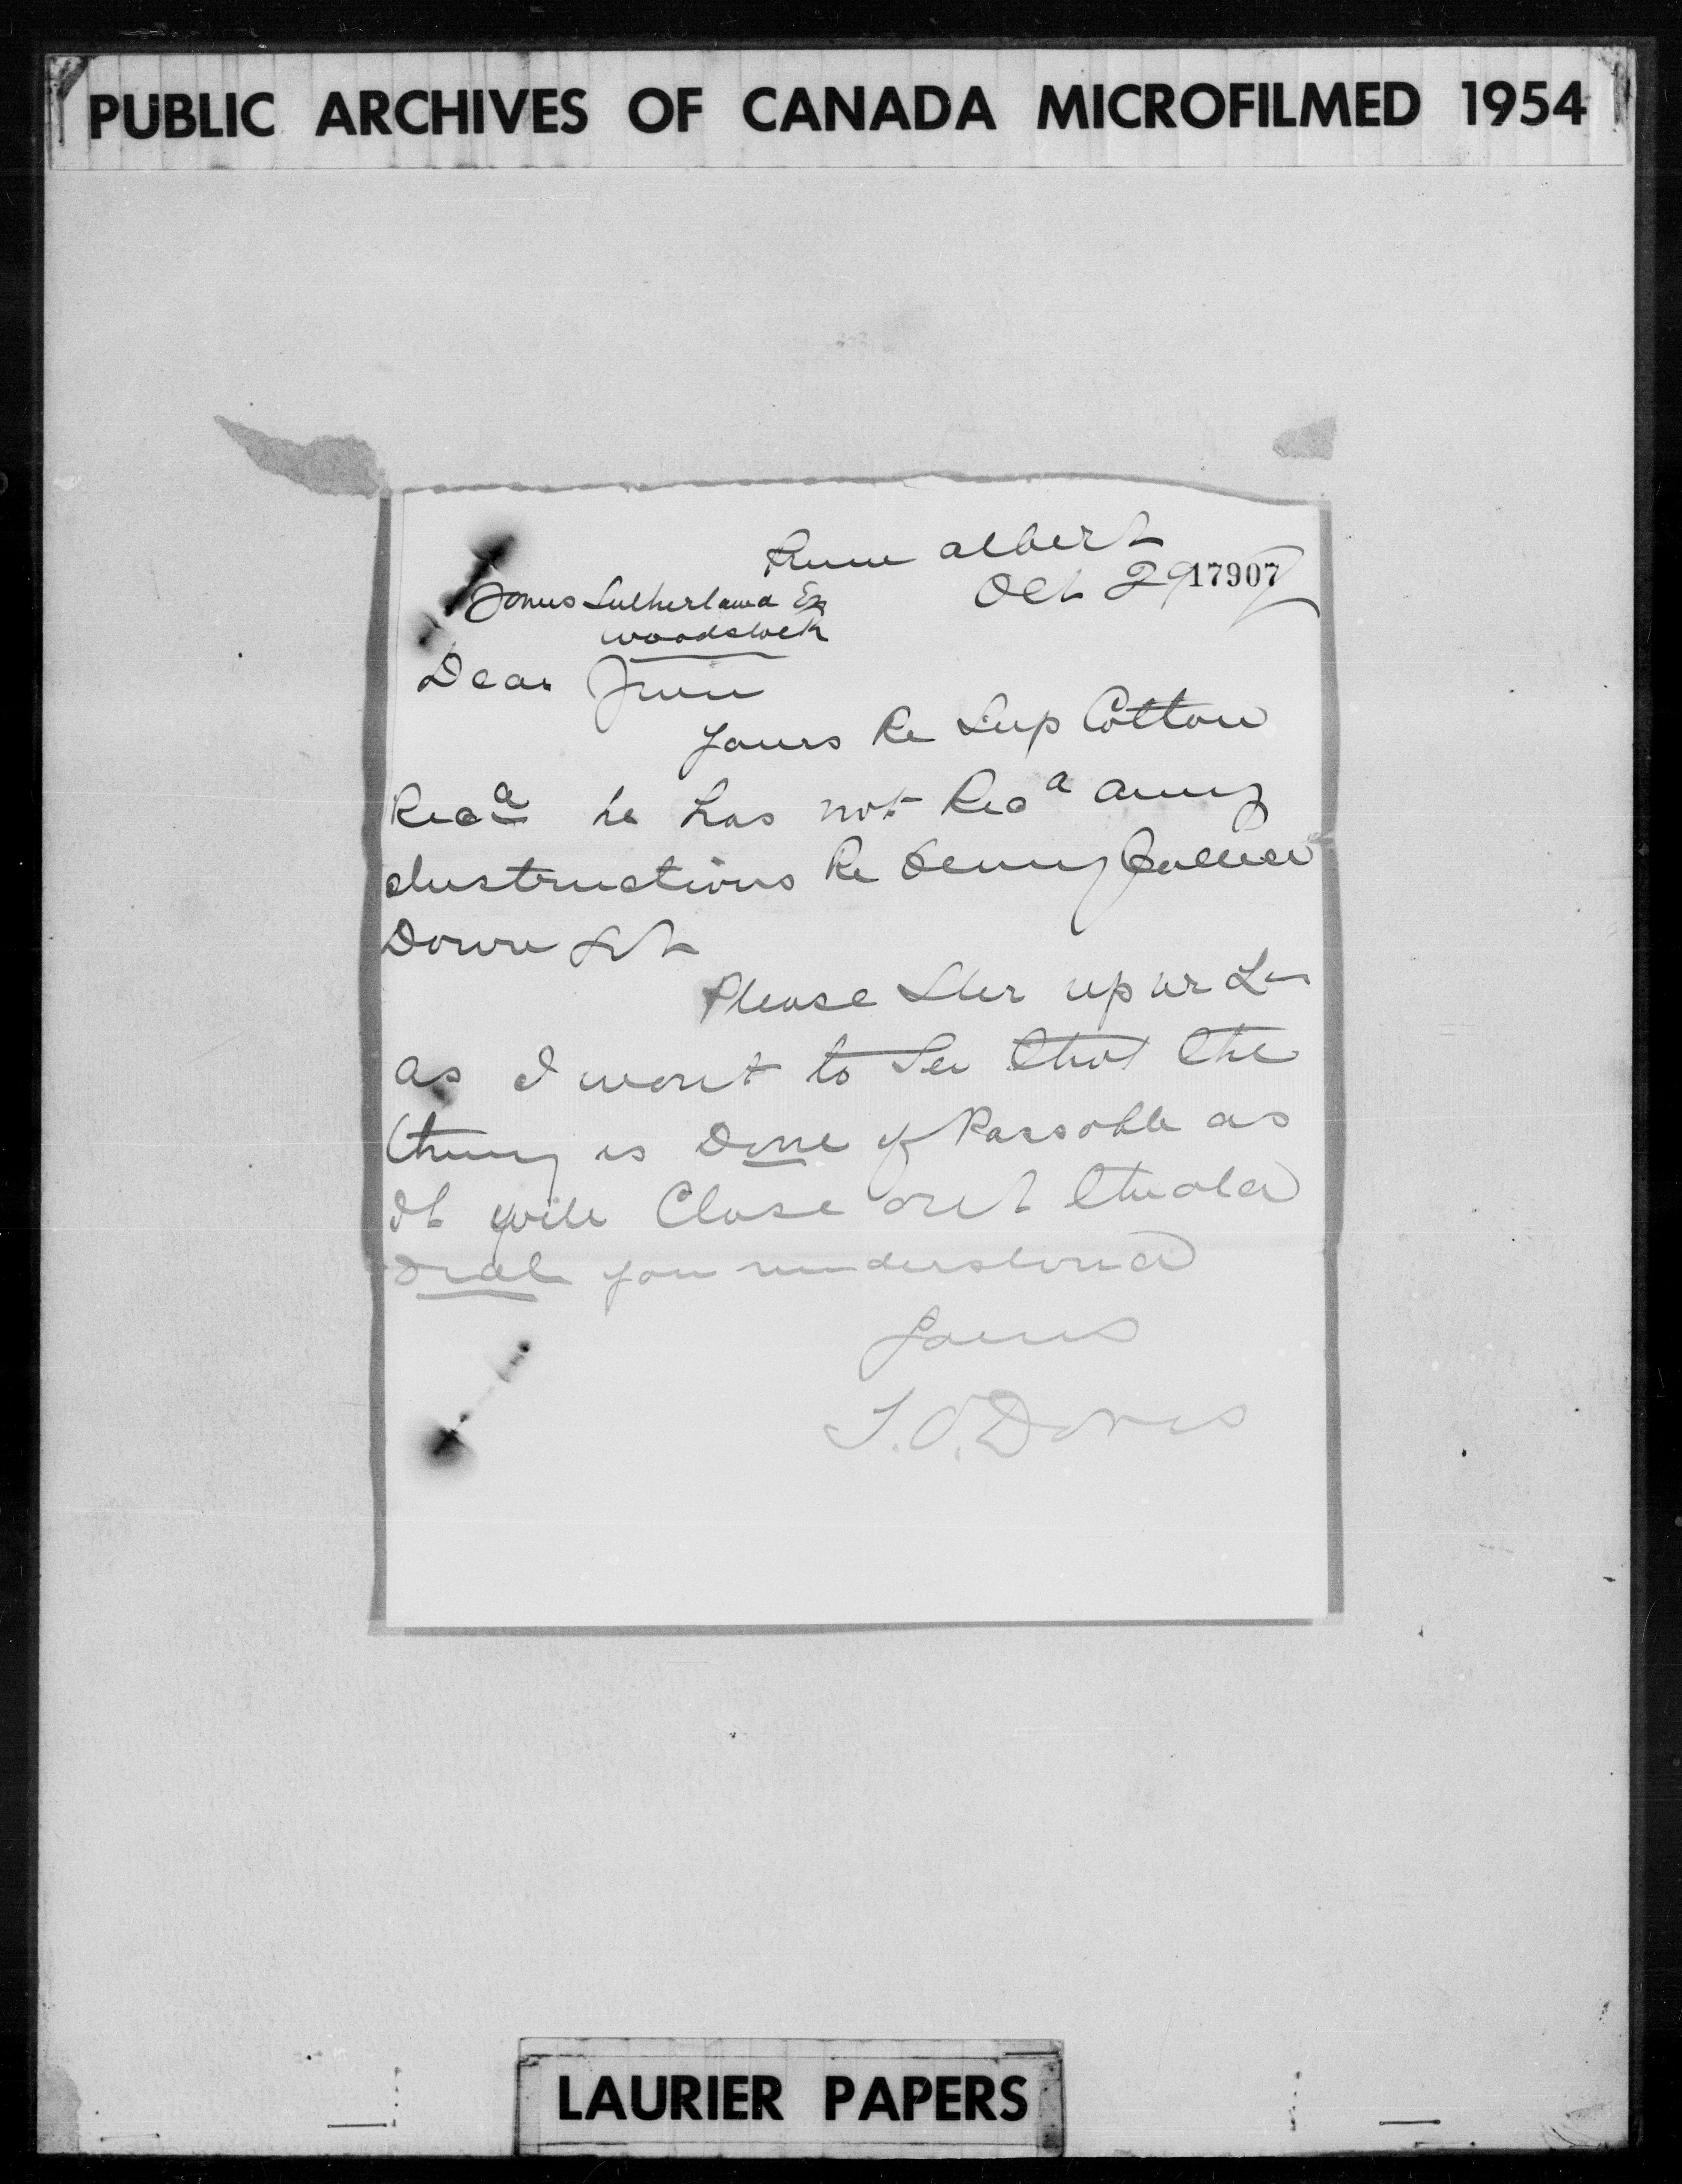 PUBLIC ARCHIVES OF CANADA MICROFILMED 1954
Prince Albert
Oct 29/97
17907
James Sutherland Esq
Woodstock
Dear Jim
Yours Re Sup Cotton
Recd he has not Recd any
Instructions Re being
Down yet
Please Stir up
as I want to See that the
thing is Done if Possoble as
It will Close out the old
deal you understand
Yours
T.O. Davis
LAURIER PAPERS